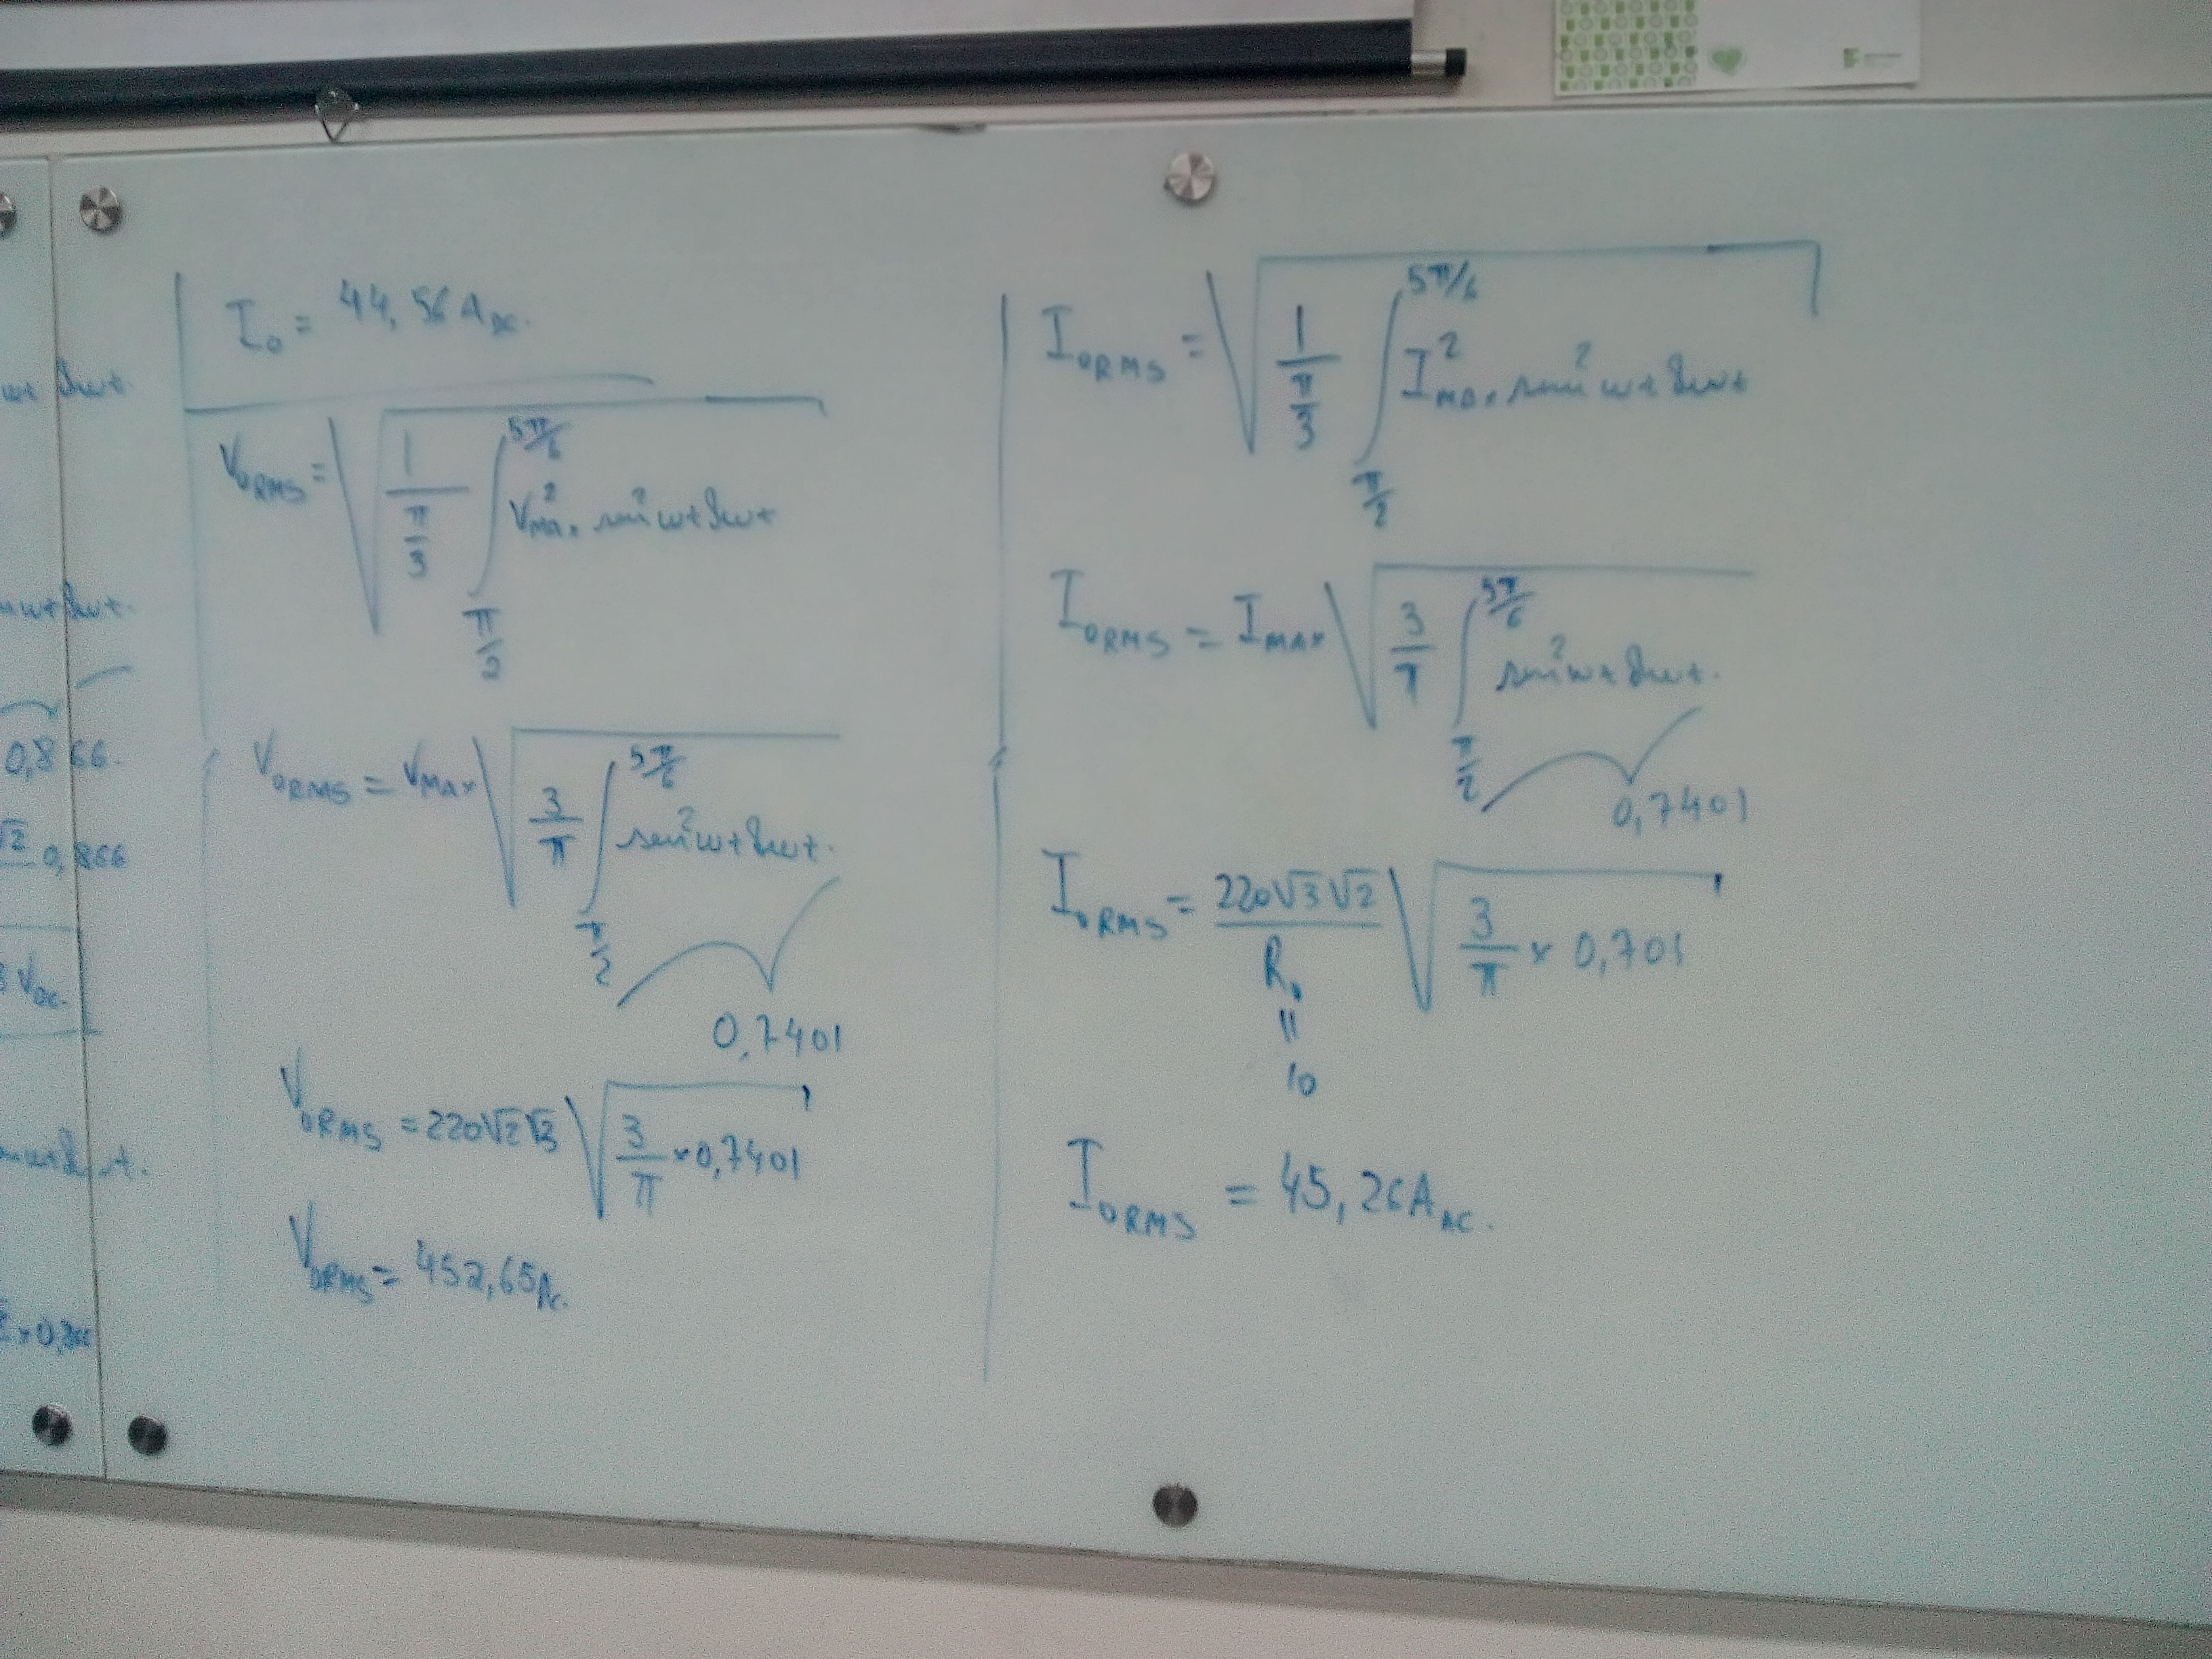 wt dwt.
wt dwt.
0,866.
√2 0,866
V_DC.
x 0,866
I_o = 44,56 A_DC.
V_ORMS = √( 1/(π/3) ∫_{π/2}^{5π/6} V²_MAX. sen² wt dwt )
V_ORMS = V_MAX √( 3/π ∫_{π/2}^{5π/6} sen² wt dwt. )
0,7401
V_ORMS = 220√2√3 √( 3/π × 0,7401 )
V_ORMS = 452,65 Ac.
I_ORMS = √( 1/(π/3) ∫_{π/2}^{5π/6} I²_MAX. sen² wt dwt )
I_ORMS = I_MAX √( 3/π ∫_{π/2}^{5π/6} sen² wt dwt. )
0,7401
I_ORMS = 220√3√2/R_o √( 3/π × 0,701 )
=
10
I_ORMS = 45,26 A_AC.